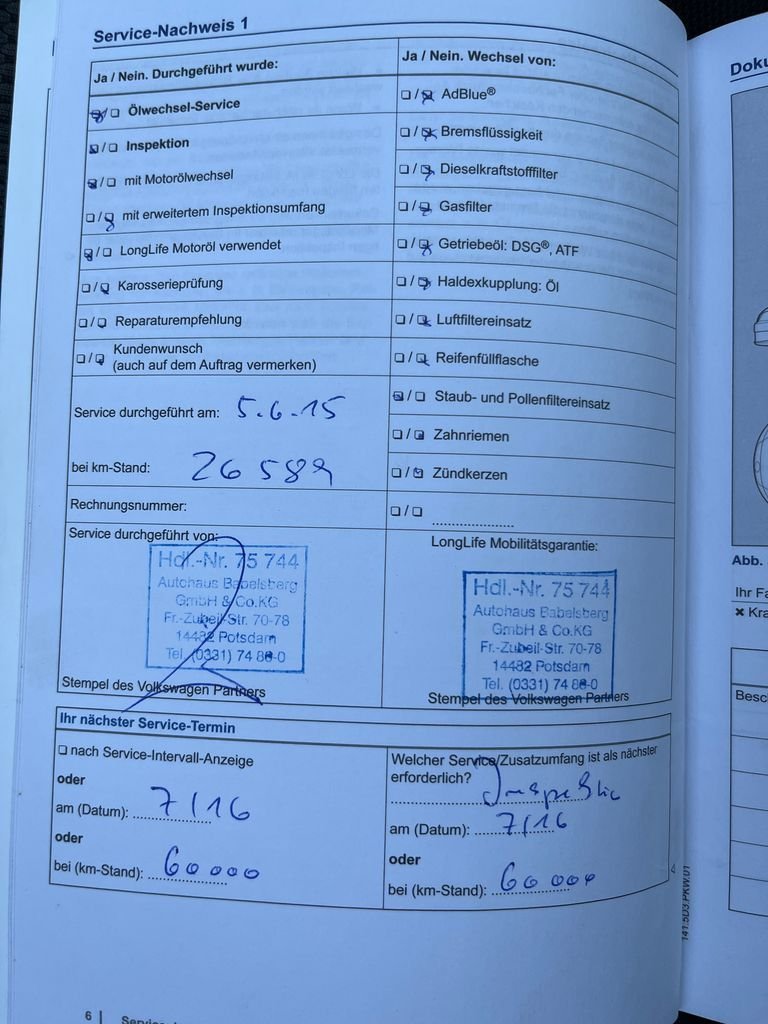 Service-Nachweis 1
Ja / Nein. Durchgeführt wurde:
☒/☐ Ölwechsel-Service
☒/☐ Inspektion
☒/☐ mit Motorölwechsel
☐/☒ mit erweitertem Inspektionsumfang
☒/☐ LongLife Motoröl verwendet
☐/☒ Karosserieprüfung
☐/☒ Reparaturempfehlung
☐/☒ Kundenwunsch
(auch auf dem Auftrag vermerken)
Service durchgeführt am: 5.6.15
bei km-Stand: 26589
Rechnungsnummer:
Service durchgeführt von:
Hdl.-Nr. 75 744
Autohaus Babelsberg
GmbH & Co.KG
Fr.-Zubeil-Str. 70-78
14482 Potsdam
Tel. (0331) 74 88-0
Stempel des Volkswagen Partners
Ja / Nein. Wechsel von:
☐/☒ AdBlue®
☐/☒ Bremsflüssigkeit
☐/☒ Dieselkraftstofffilter
☐/☒ Gasfilter
☐/☒ Getriebeöl: DSG®, ATF
☐/☒ Haldexkupplung: Öl
☐/☒ Luftfiltereinsatz
☐/☒ Reifenfüllflasche
☒/☐ Staub- und Pollenfiltereinsatz
☐/☒ Zahnriemen
☐/☒ Zündkerzen
☐/☐ ....................
LongLife Mobilitätsgarantie:
Hdl.-Nr. 75 744
Autohaus Babelsberg
GmbH & Co.KG
Fr.-Zubeil-Str. 70-78
14482 Potsdam
Tel. (0331) 74 88-0
Stempel des Volkswagen Partners
Ihr nächster Service-Termin
☐ nach Service-Intervall-Anzeige
oder
am (Datum): 7/16
oder
bei (km-Stand): 60000
Welcher Service/Zusatzumfang ist als nächster
erforderlich?
Inspektion
am (Datum): 7/16
oder
bei (km-Stand): 60000
141.5D3.PKW.01
6 |
Abb.
✖